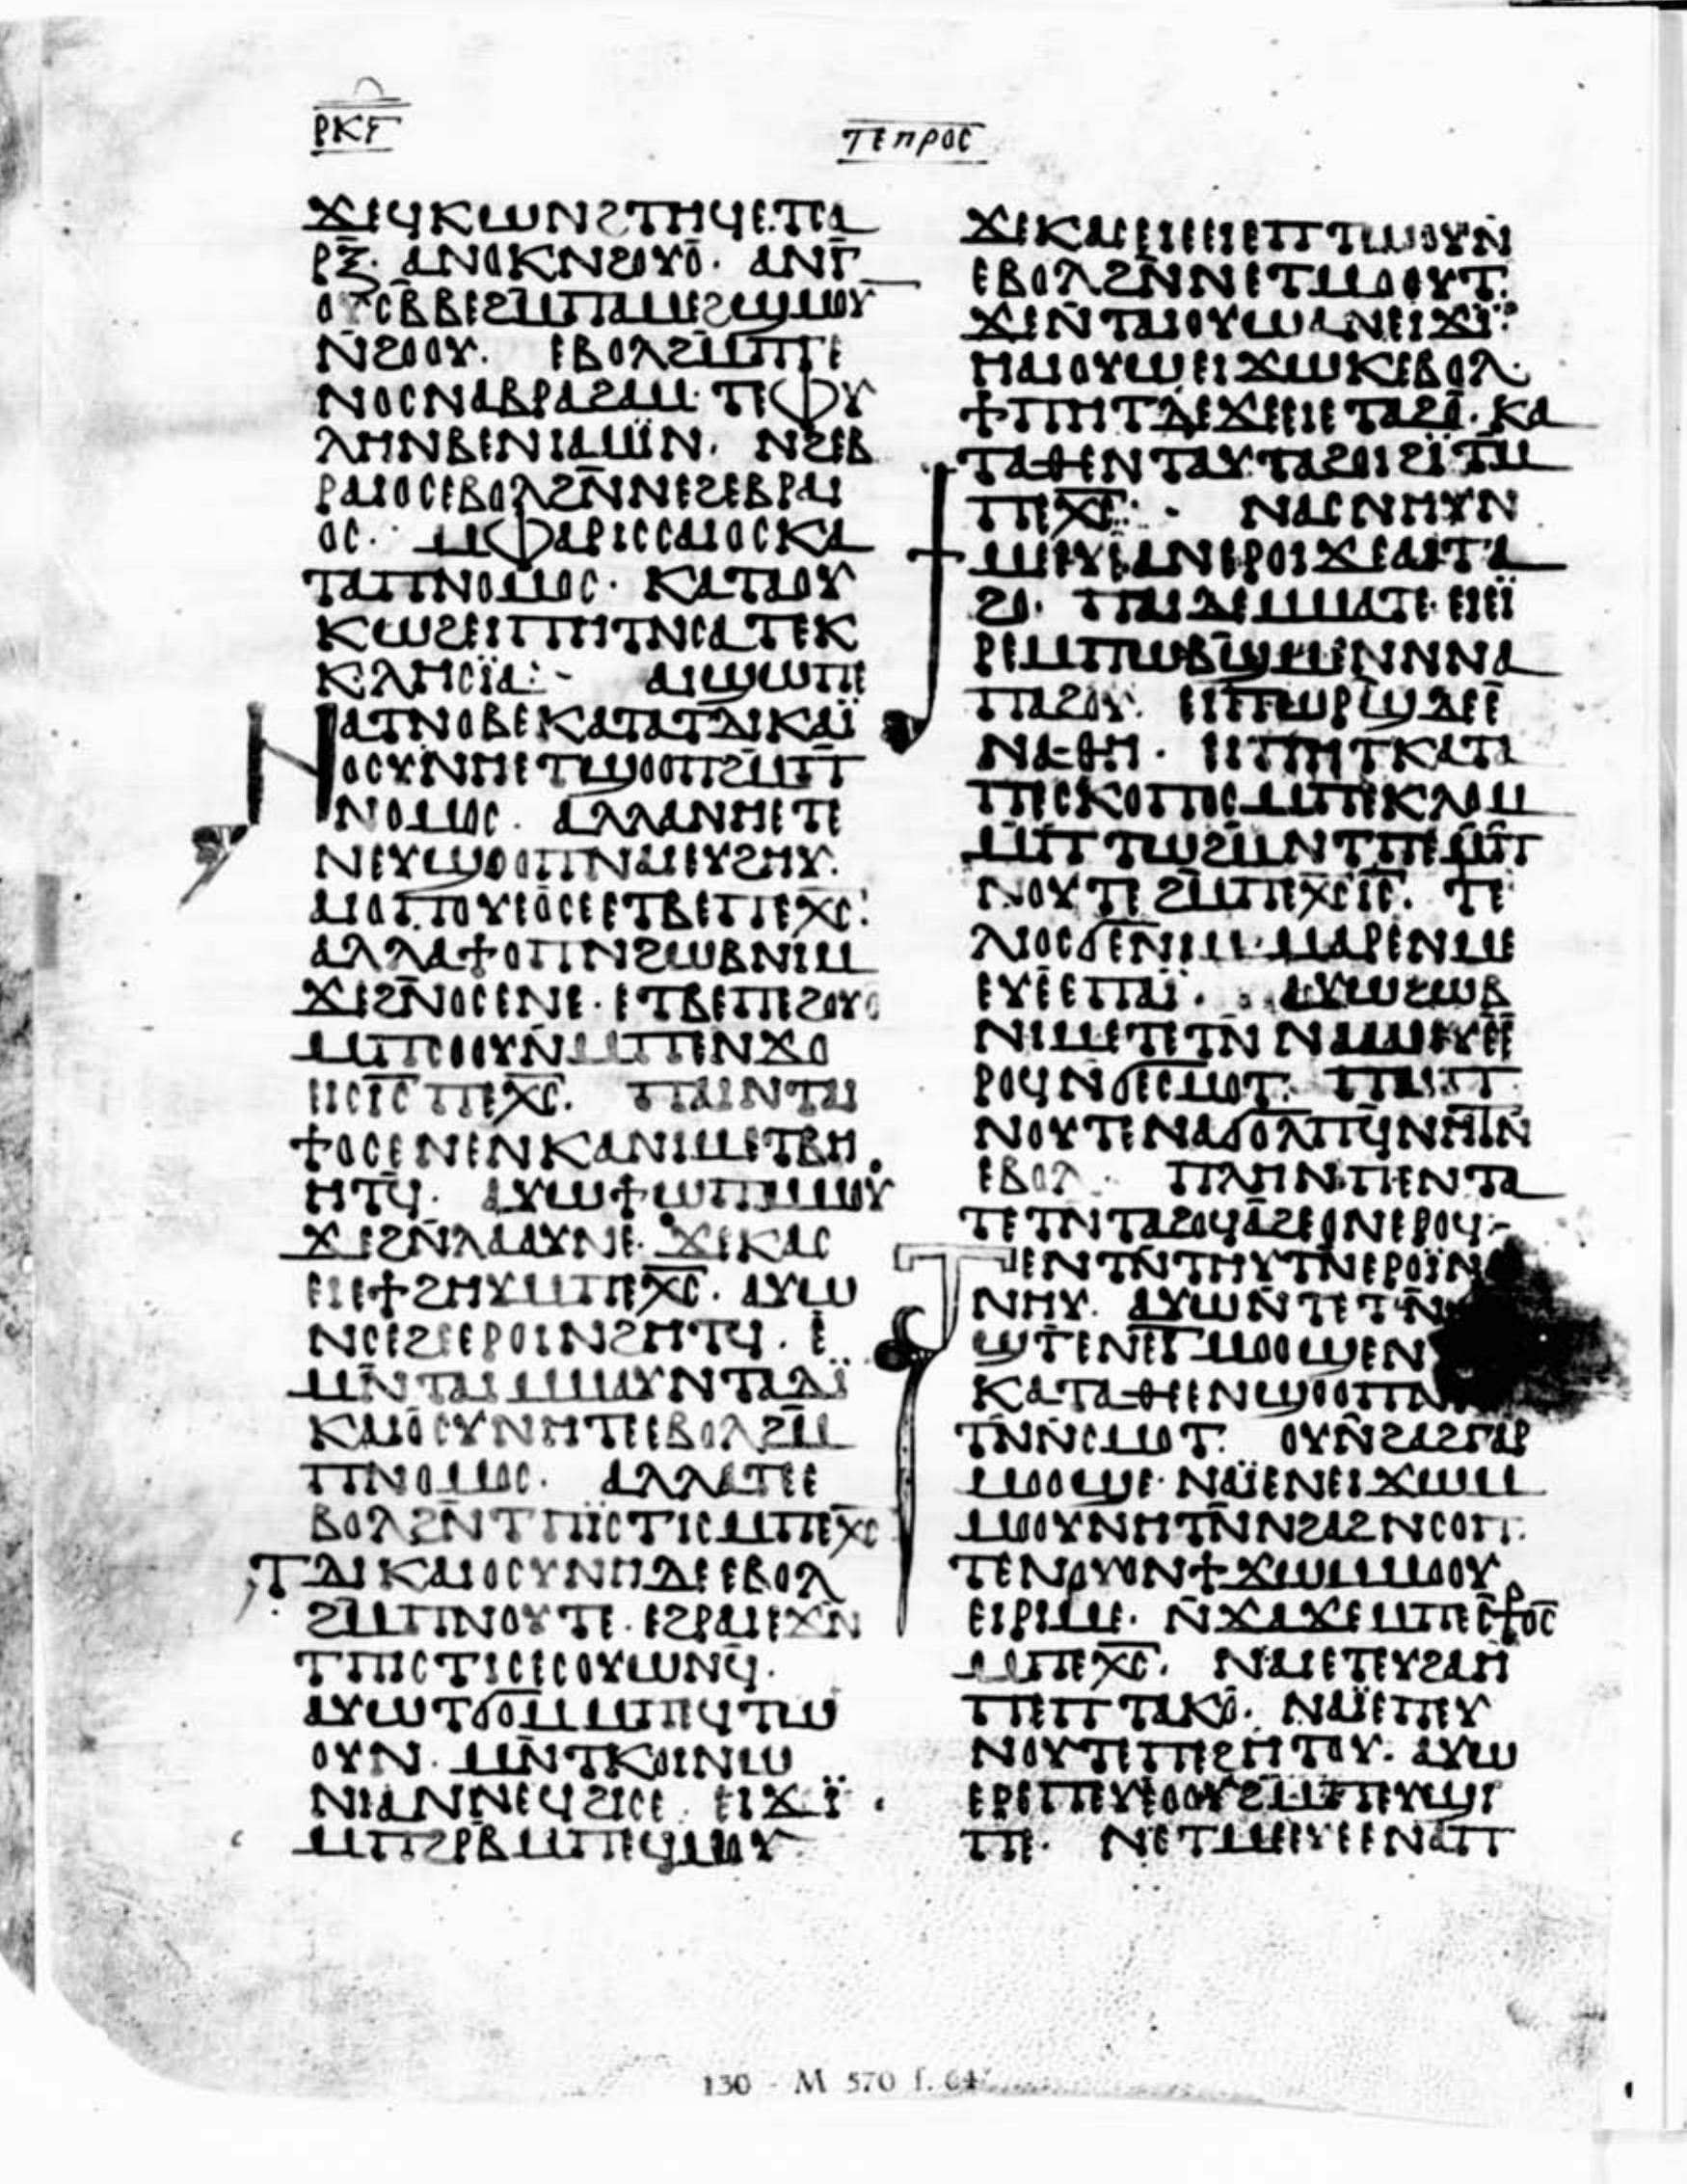 ⲣⲕⲋ
ⲧⲉⲡⲣⲟⲥ
ϫⲉϥⲕⲱⲛϩⲧⲏϥⲉⲧⲥⲁ
ⲣⲝ̄· ⲁⲛⲟⲕⲛϩⲟⲩⲟ̄· ⲁⲛⲅ̄
ⲟⲩⲥⲃ̄ⲃⲉϩⲙⲡⲁⲙⲉϩϣⲙⲟⲩ
ⲛ̄ϩⲟⲟⲩ. ⲉⲃⲟⲗϩⲙ̄ⲡⲅⲉ
ⲛⲟⲥⲛⲁⲃⲣⲁϩⲁⲙ· ⲧⲉⲫⲩ
ⲗⲏⲛⲃⲉⲛⲓⲁⲙⲓ̈ⲛ. ⲛϩⲉⲃ
ⲣⲁⲓⲟⲥⲉⲃⲟⲗϩⲛ̄ⲛⲉϩⲉⲃⲣⲁⲓ
ⲟⲥ· ⲙⲫⲁⲣⲓⲥⲥⲁⲓⲟⲥⲕⲁ
ⲧⲁⲡⲛⲟⲙⲟⲥ· ⲕⲁⲧⲁⲟⲩ
ⲕⲱϩⲉⲓⲡⲏⲧⲛⲥⲁⲧⲉⲕ
ⲕⲗⲏⲥⲓ̈ⲁ:- ⲁⲓϣⲱⲡⲉ
ⲛⲁⲧⲛⲟⲃⲉⲕⲁⲧⲁⲧⲇⲓⲕⲁⲓ̈
ⲟⲥⲩⲛⲏⲉⲧϣⲟⲟⲡϩⲙⲡ
ⲛⲟⲙⲟⲥ. ⲁⲗⲗⲁⲛⲏⲉⲧⲉ
ⲛⲉⲩϣⲟⲟⲡⲛⲁⲓⲉⲩϩⲏⲩ.
ⲁⲓⲟⲡⲟⲩⲉⲟ̄ⲥⲉⲉⲧⲃⲉⲡⲉⲭ̄ⲥ̄:
ⲁⲗⲗⲁϯⲟⲡⲛϩⲱⲃⲛⲓⲙ
ϫⲉϩⲛ̄ⲟⲥⲉⲛⲉ· ⲉⲧⲃⲉⲡⲉϩⲟⲩⲟ
ⲙⲡⲥⲟⲟⲩⲛ̄ⲙⲡⲉⲛϫⲟ
ⲉⲓⲥⲓ̄ⲥ̄ⲡⲉⲭ̄ⲥ̄. ⲡⲁⲓⲛⲧⲁⲓ
ϯⲟⲥⲉⲛⲉⲛⲕⲁⲛⲓⲙⲉⲧⲃⲏ
ⲏⲧϥ̄· ⲁⲩⲱϯⲱⲡⲙⲙⲟⲩ
ϫⲉϩⲛ̄ⲗⲁⲁⲩⲛⲉ· ϫⲉⲕⲁⲥ
ⲉⲓⲉϯϩⲏⲩⲙⲡⲉⲭ̄ⲥ̄. ⲁⲩⲱ
ⲛⲥⲉϩⲉⲉⲣⲟⲓⲛϩⲏⲧϥ. ⲉ
ⲙⲛ̄ⲧⲁⲓⲙⲙⲁⲩⲛⲧⲁⲇⲓ̈
ⲕⲁⲓⲟⲥⲩⲛⲏⲧⲉⲉⲃⲟⲗϩⲙ̄
ⲡⲛⲟⲙⲟⲥ. ⲁⲗⲗⲁⲧⲉⲉ
ⲃⲟⲗϩⲛ̄ⲧⲡⲓ̈ⲥⲧⲓⲥⲙⲡⲉⲭ̄ⲥ̄
ⲧⲇⲓⲕⲁⲓⲟⲥⲩⲛⲏⲇⲉⲉⲃⲟⲗ
ϩⲙⲡⲛⲟⲩⲧⲉ. ⲉϩⲣⲁⲓⲉϫⲛ̄
ⲧⲡⲓⲥⲧⲓⲥⲉⲥⲟⲩⲱⲛϥ̄.
ⲁⲩⲱⲧϭⲟⲙⲙⲡϥⲧⲱ
ⲟⲩⲛ. ⲙⲛ̄ⲧⲕⲟⲓⲛⲱ
ⲛⲓⲁⲛⲛⲉϥϩⲓⲥⲉ. ⲉⲓϫⲓ̈
ⲙⲡϩⲣ̄ⲃ̄ⲙⲡⲉϥⲙⲟⲩ
ϫⲉⲕⲁⲥⲉⲓⲉⲉⲓⲉⲡⲧⲱⲟⲩⲛ̄
ⲉⲃⲟⲗϩⲛ̄ⲛⲉⲧⲙⲟⲟⲩⲧ.
ϫⲉⲛ̄ⲧⲁⲓⲟⲩⲱⲁⲛⲉⲓϫⲓ̈·
ⲏⲁⲓⲟⲩⲱⲉⲓϫⲱⲕⲉⲃⲟⲗ·
ϯⲡⲏⲧⲇⲉϫⲉⲉⲓⲉⲧⲁϩⲟ̄· ⲕⲁ
ⲧⲁⲑⲉⲛⲧⲁⲩⲧⲁϩⲟⲓϩⲓ̈ⲧⲙ̄
ⲡⲉⲭ̄ⲥ̄:- ⲛⲁⲥⲛⲏⲩⲛ
ϯⲙⲉⲩⲉ̄ⲁⲛⲉⲣⲟⲓϫⲉⲁⲓⲧⲁ
ϩⲟ· ⲡⲁⲓⲇⲉⲙⲙⲁⲧⲉ· ⲉⲓⲉⲓ̈
ⲣⲉⲙⲡⲱⲃϣ̄ⲙⲉⲛⲛⲛⲁ
ⲡⲁϩⲟⲩ. ⲉⲓⲡⲱⲣϣ̄ⲇⲉⲉ̄
ⲛⲁⲑⲏ· ⲉⲓⲡⲏⲧⲕⲁⲧⲁ
ⲡⲉⲥⲕⲟⲡⲟⲥⲙⲡⲉⲕⲗⲟⲙ
ⲙ̄ⲡⲧⲱϩⲙⲛⲧⲡⲉⲙ̄ⲡ
ⲛⲟⲩⲧⲉϩⲙⲡⲉⲭ̄ⲥ̄ⲓ̄ⲥ̄. ⲧⲉ
ⲗⲓⲟⲥϭⲉⲛⲓⲙ· ⲙⲁⲣⲉⲛⲙⲉ
ⲉⲩⲉ̄ⲉⲡⲁⲓ̈. ⲁⲩⲱϩⲱⲃ
ⲛⲓⲙⲉⲧⲉⲧⲛ̄ⲛⲁⲙⲉⲩⲉ̄ⲉ̄
ⲣⲟϥⲛϭⲉⲥⲙⲟⲧ: ⲡⲁⲓⲡ
ⲛⲟⲩⲧⲉⲛⲁϭⲟⲗⲡϥⲛⲏⲧⲛ̄
ⲉⲃⲟⲗ· ⲡⲗⲏⲛⲡⲉⲛⲧⲁ
ⲧⲉⲧⲛ̄ⲧⲁϩⲟϥⲁϩⲉⲟⲛⲉⲣⲟϥ:-
ⲧⲉⲛⲧⲛ̄ⲧⲏⲩⲧⲛⲉⲣⲟⲓ̈ⲛ
ⲛⲏⲩ. ⲁⲩⲱⲛ̄ⲧⲉⲧⲛ̄
ϣⲧⲉⲛⲉⲧⲙⲟⲟϣⲉⲛ
ⲕⲁⲧⲁⲑⲉⲉⲛϣⲟⲟⲡⲛ
ⲧⲛ̄ⲛ̄ⲥⲙⲟⲧ. ⲟⲩⲛ̄ϩⲁϩⲅⲁⲣ
ⲙⲟⲟϣⲉ· ⲛⲁⲓ̈ⲉⲛⲉⲓϫⲱⲙ
ⲙⲟⲟⲩⲛⲏⲧⲛ̄ⲛϩⲁϩⲛⲥⲟⲡ.
ⲧⲉⲛⲟⲩⲟⲛϯϫⲱⲙⲙⲟⲟⲩ
ⲉⲓⲣⲓⲙⲉ. ⲛ̄ϫⲁϫⲉⲙⲡⲉⲥ̄⳨ⲟ̄ⲥ̄
ⲙⲡⲉⲭ̄ⲥ̄. ⲛⲁⲓⲉⲧⲉⲩϩⲁⲏ
ⲡⲉⲡⲧⲁⲕⲟ̄. ⲛⲁⲓ̈ⲉⲡⲉⲩ
ⲛⲟⲩⲧⲉⲡⲉϩⲏⲧⲟⲩ. ⲁⲩⲱ
ⲉⲣⲉⲡⲉⲩⲉⲟⲟⲩϩⲙ̄ⲡⲉⲩϣⲓ
ⲡⲉ· ⲛⲉⲧⲙⲉⲉⲩⲉⲉⲛⲁⲡ
130 - M 570 f. 64